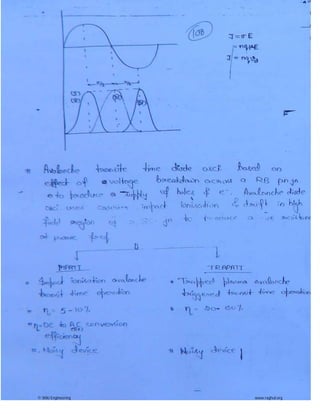 108
J = σE
= nqμE
J = nqv
* Avalanche transite time diode osci based on
effect of voltage breakdown across a RB pn jn
to produce a supply of holes & e-. Avalanche diode
osci uses carrier impact ionisation & drift in high
field region of a jn to produce a -ve resistance
at freq
IMPATT
TRAPATT
* Impact ionisation avalanche
* Trapped plasma avalanche
transit time operation
triggered transit time operation
* η = 5-10%
* η = 20-60%
* η - DC to AC conversion
efficiency
* Noisy device
* Noisy device
© Wiki Engineering
www.raghul.org